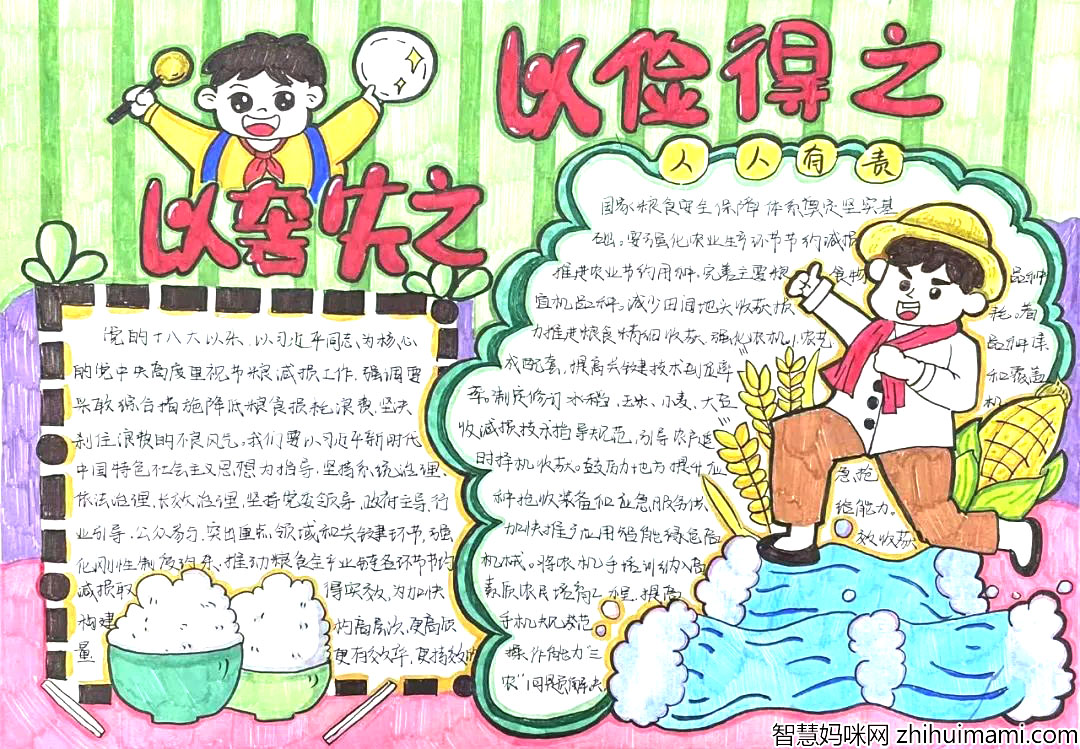 以俭得之
以奢失之
人人有责
党的十八大以来，以习近平同志为核心
的党中央高度重视节粮减损工作，强调要
采取综合措施降低粮食损耗浪费，坚决
刹住浪费的不良风气。我们要以习近平新时代
中国特色社会主义思想为指导，坚持系统治理、
依法治理、长效治理，坚持党委领导、政府主导、行
业引导、公众参与，突出重点领域和关键环节，强
化刚性制度约束，推动粮食全产业链各环节节约
减损取 得实效，为加快
构建 的高层次、更高质
量 更有效率、更持续的
国家粮食安全保障体系奠定坚实基
础。要强化农业生产环节节约减损
推进农业节约用种，完善主要粮 食物 品种
宜机品种。减少田间地头收获损 耗。着
力推进粮食精细收获，强化农机、农艺 品种集
成配套，提高关键技术到位率 和覆盖
率。制定修订水稻、玉米、小麦、大豆 机
收减损技术指导规范，引导农户适
时择机收获。鼓励地方提升应 急抢
种抢收装备和应急服务供 给能力。
加快推广应用智能绿色高 效收获
机械。将农机手培训纳入高
素质农民培育工程，提高
手机规范
操作能力三
农"问题解决
智慧妈咪网 zhihuimami.com